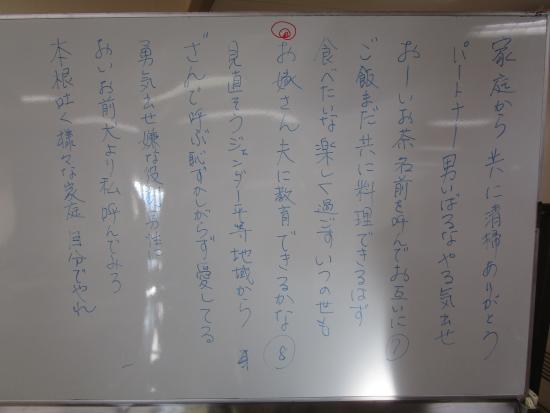 家庭から 共に清掃ありがとう
パートナー 男いばるなやる気出せ
おーいお茶名前を呼んでお互いに ①
ご飯まだ共に料理できるはず
食べたいな楽しく過ごすいつの世も
お嫁さん 夫に教育できるかな ⑧
見直そうジェンダー平等地域から
さんで呼ぶ恥ずかしがらず愛してる
勇気出せ嫌な役 男性に
おいお前犬より私呼んでみろ
本根吐く様々な家庭 自分でやれ